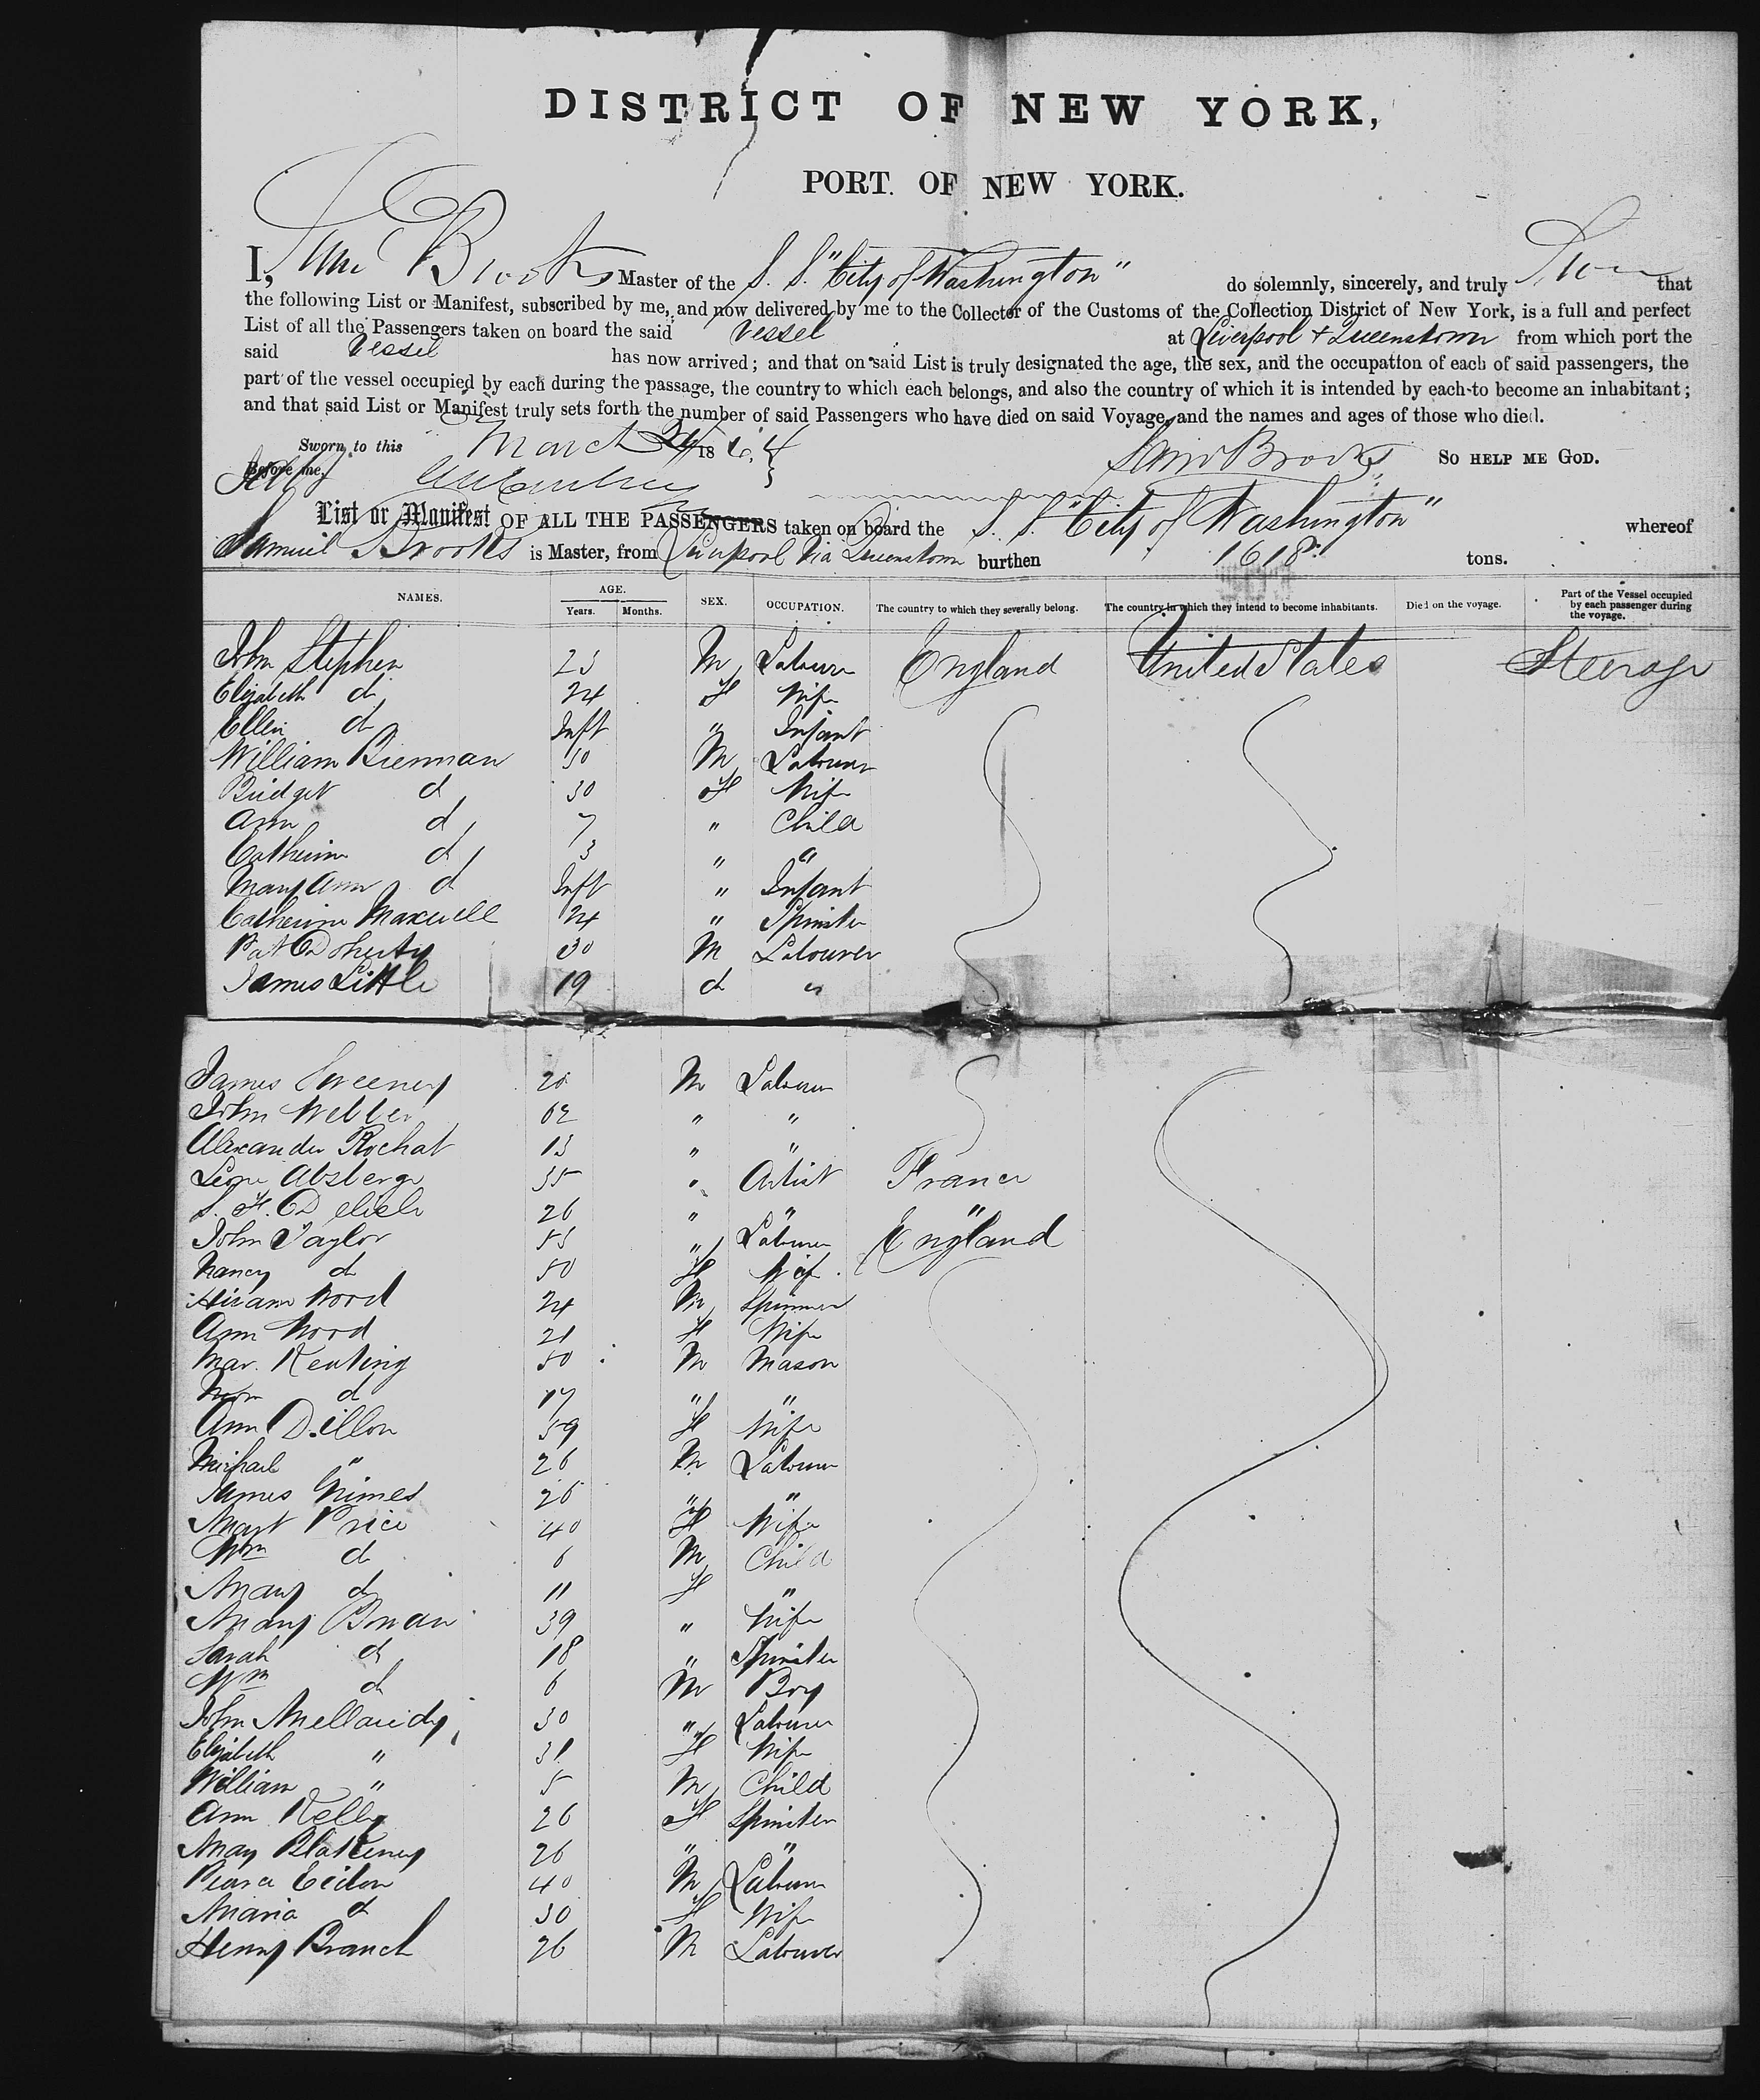 DISTRICT OF NEW YORK,
PORT OF NEW YORK.
I, Saml Brooks Master of the S. S. "City of Washington" do solemnly, sincerely, and truly that
the following List or Manifest, subscribed by me, and now delivered by me to the Collector of the Customs of the Collection District of New York, is a full and perfect
List of all the Passengers taken on board the said Vessel at Liverpool & Queenstown from which port the
said Vessel has now arrived; and that on said List is truly designated the age, the sex, and the occupation of each of said passengers, the
part of the vessel occupied by each during the passage, the country to which each belongs, and also the country of which it is intended by each to become an inhabitant;
and that said List or Manifest truly sets forth the number of said Passengers who have died on said Voyage, and the names and ages of those who died.
Sworn to this March 24 1864 Saml Brooks SO HELP ME GOD.
Before me,
List or Manifest OF ALL THE PASSENGERS taken on board the S. S. "City of Washington" whereof
Samuel Brooks is Master, from Liverpool via Queenstown burthen 1618 tons.
NAMES. AGE. Years. Months. SEX. OCCUPATION. The country to which they severally belong. The country in which they intend to become inhabitants. Died on the voyage. Part of the Vessel occupied by each passenger during the voyage.
John Stephen 23 M Labourer England United States Steerage
Elizabeth do 24 F Wife
Ellen do Inft " Infant
William Brennan 30 M Labourer
Bridget do 30 F Wife
Ann do 7 " Child
Catherine do 3 " "
Mary Ann do Inft " Infant
Catherine Maxwell 24 " Spinster
Pat Doherty 30 M Labourer
James Little 19 do "
James Sweeney 20 M Labourer
John Webber 62 " "
Alexander Rochat 13 " "
Leon 35 " Artist France
S. H. 26 " " "
John Taylor 55 " Labourer England
Nancy do 50 F Wife
Hiram Wood 24 M Spinner
Ann Wood 21 F Wife
Mar. Keating 50 M Mason
do 17 " "
Ann Dillon 59 F Wife
Michael " 26 M Labourer
James Grimes 26 " "
Margt Price 40 F Wife
Wm do 6 M Child
Mary do 11 F "
Mary 39 " Wife
Sarah do 18 " Spinster
Wm do 6 M Boy
John 30 " Labourer
Elizabeth " 31 F Wife
William " 5 M Child
Ann Kelly 26 F Spinster
Mary Blakeney 26 " "
Pearce 40 M Labourer
Maria do 30 F Wife
Henry Branch 26 M Labourer